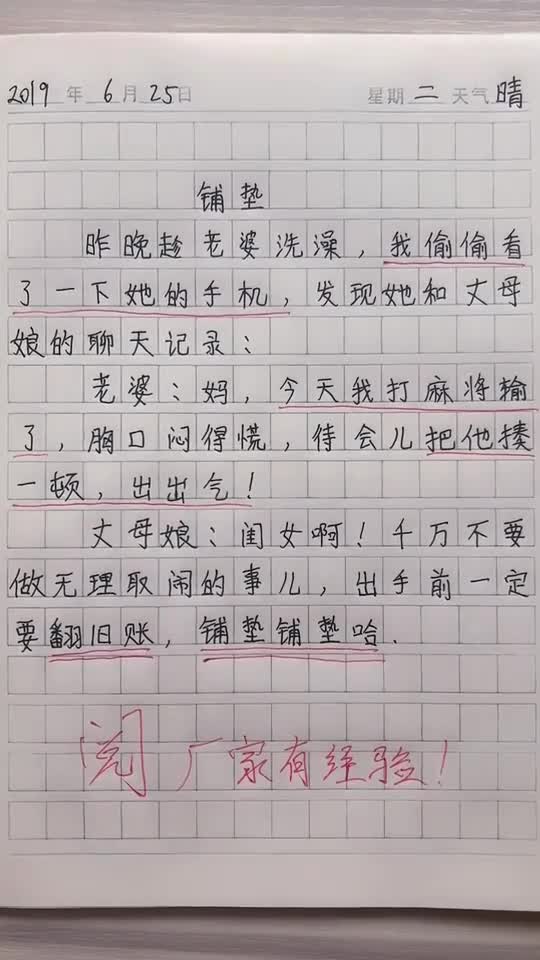 2019年6月25日 星期二 天气晴
铺垫
昨晚趁老婆洗澡，我偷偷看
了一下她的手机，发现她和丈母
娘的聊天记录：
老婆：妈，今天我打麻将输
了，胸口闷得慌，待会儿把他揍
一顿，出出气！
丈母娘：闺女啊！千万不要
做无理取闹的事儿，出手前一定
要翻旧账，铺垫铺垫哈.
阅 厂家有经验！